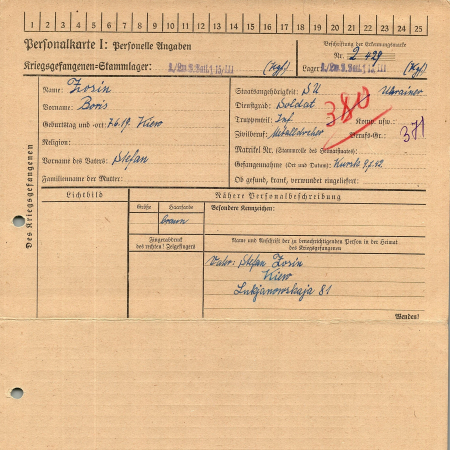 1 2 3 4 5 6 7 8 9 10 11 12 13 14 15 16 17 18 19 20 21 22 23 24 25
Personalkarte I: Personelle Angaben
Beschriftung der Erkennungsmarke
Nr. 2 429
Kriegsgefangenen-Stammlager: (Kgf)
Lager (Kgf)
Des Kriegsgefangenen
Name: Zosin
Staatsangehörigkeit: SU Ukrainer
Vorname: Boris
Dienstgrad: Soldat
380
Geburtstag und -ort: 7.6.19. Kiew
Truppenteil: Inf Komp. usw.:
Religion:
Zivilberuf: Berufs-Gr.: 371
Vorname des Vaters: Stefan
Matrikel Nr. (Stammrolle des Heimatstaates):
Gefangennahme (Ort und Datum): Kursk
Familienname der Mutter:
Ob gesund, krank, verwundet eingeliefert:
Lichtbild
Nähere Personalbeschreibung
Größe Haarfarbe
Besondere Kennzeichen:
braun
Fingerabdruck
des rechten! Zeigefingers
Name und Anschrift der zu benachrichtigenden Person in der Heimat
des Kriegsgefangenen
Vater: Stefan Zosin
Kiew
Lukjanowskaja 81
Wenden!